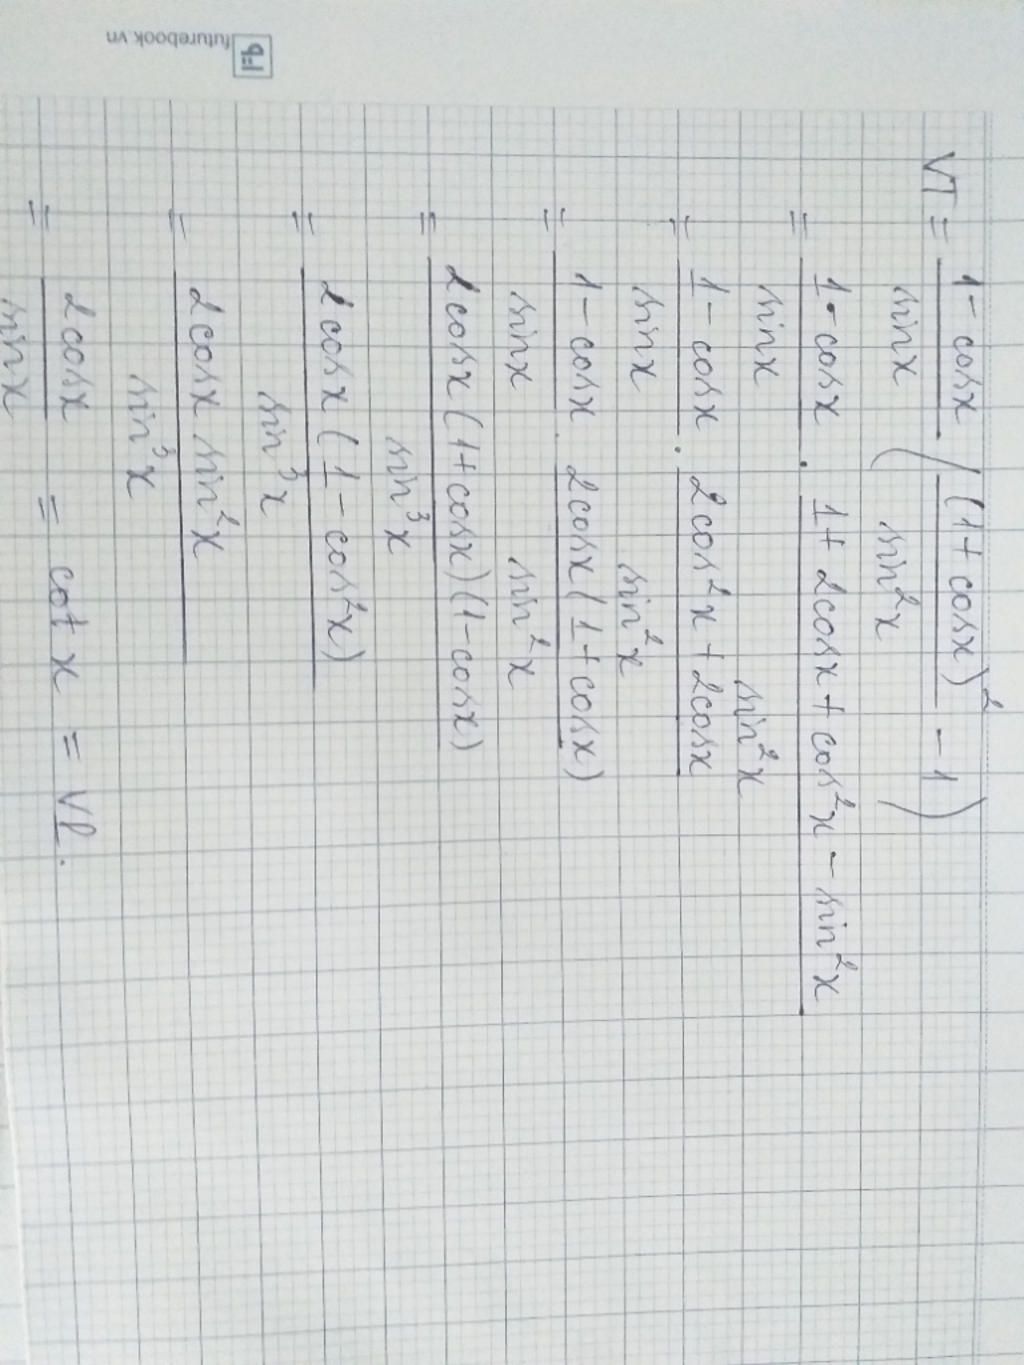 futurebook.vn
VT = \frac{1 - cosx}{sinx} \cdot \left( \frac{(1 + cosx)^2}{sin^2x} - 1 \right)
= \frac{1 - cosx}{sinx} \cdot \frac{1 + 2cosx + cos^2x - sin^2x}{sin^2x}
= \frac{1 - cosx}{sinx} \cdot \frac{2cos^2x + 2cosx}{sin^2x}
= \frac{1 - cosx}{sinx} \cdot \frac{2cosx(1 + cosx)}{sin^2x}
= \frac{2cosx(1 + cosx)(1 - cosx)}{sin^3x}
= \frac{2cosx(1 - cos^2x)}{sin^3x}
= \frac{2cosx sin^2x}{sin^3x}
= \frac{2cosx}{sinx} = cotx = VP.